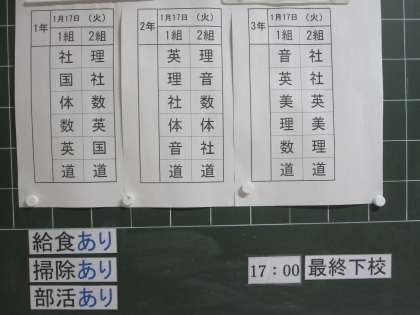 1年 1月17日 (火)
1組 2組
社 理
国 社
体 数
数 英
英 国
道 道
2年 1月17日 (火)
1組 2組
英 理
理 音
社 数
体 体
音 社
道 道
3年 1月17日 (火)
1組 2組
音 社
英 社
美 英
理 美
数 理
道 道
給食あり
掃除あり
部活あり
17:00 最終下校